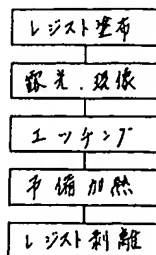 レジスト塗布
露光、現像
エッチング
予備加熱
レジスト剥離